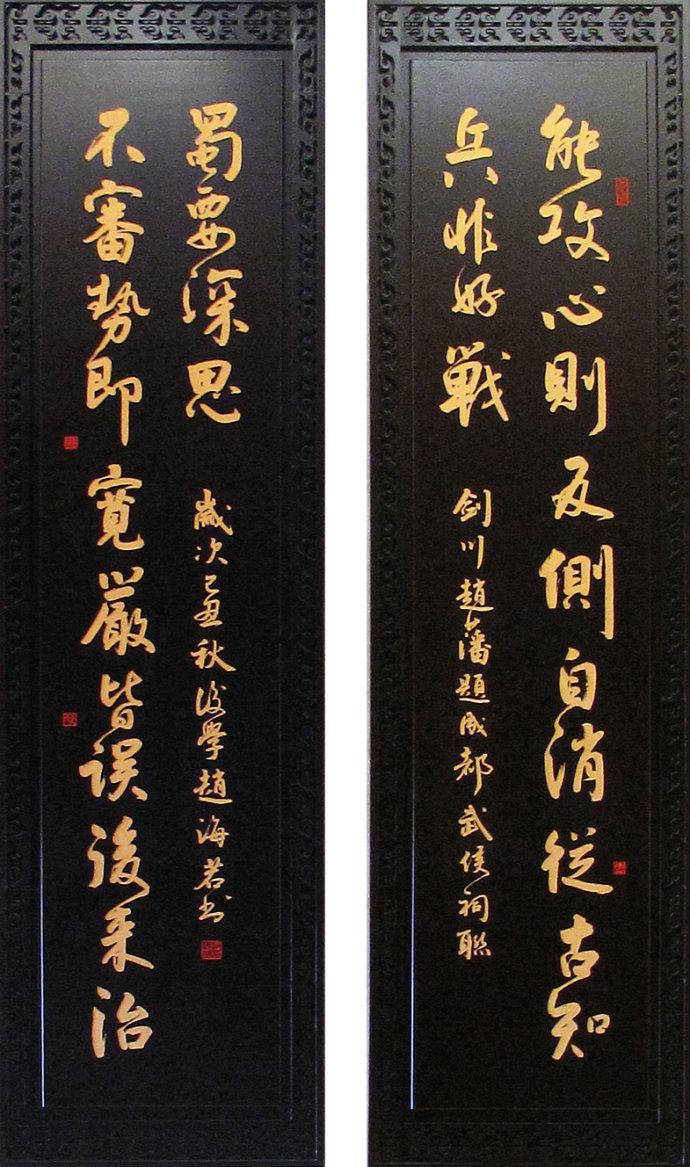 能攻心則反側自消從古知
兵非好戰
劍川趙藩題成都武侯祠聯
不審勢即寬嚴皆誤後来治
蜀要深思
歲次己丑秋後學趙海若书